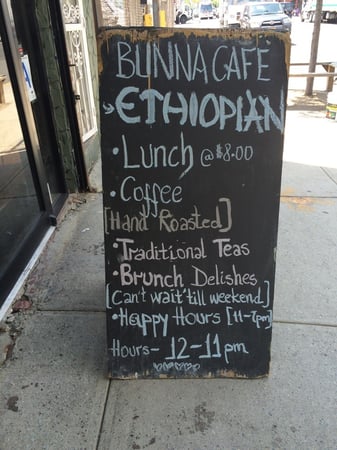 BUNNA CAFE
ETHIOPIAN
• Lunch @ $8.00
• Coffee
[Hand Roasted]
• Traditional Teas
• Brunch Delishes
[Can't wait 'till weekend]
• Happy Hours [11-7pm]
Hours - 12-11pm